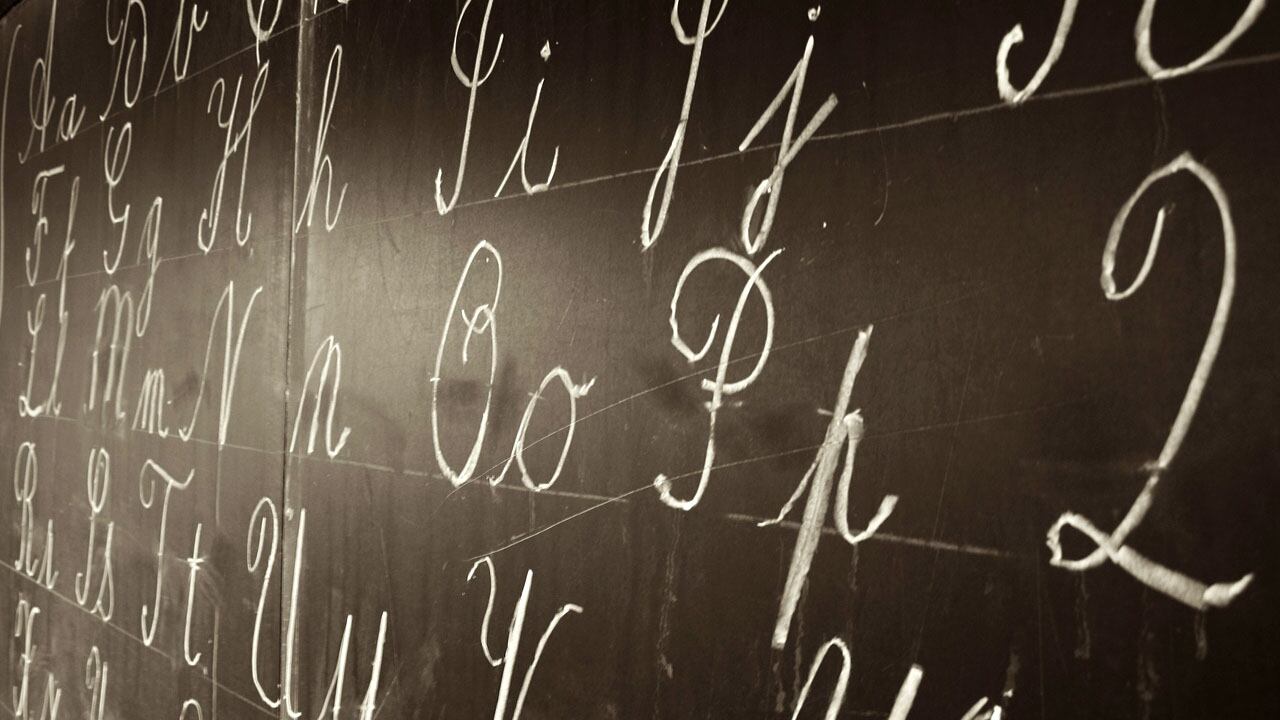 Aa B b
Ff Gg Hh Ii Jj
Ll Mm Nn Oo Pp Q
Rr Ss Tt Uu V
Xx